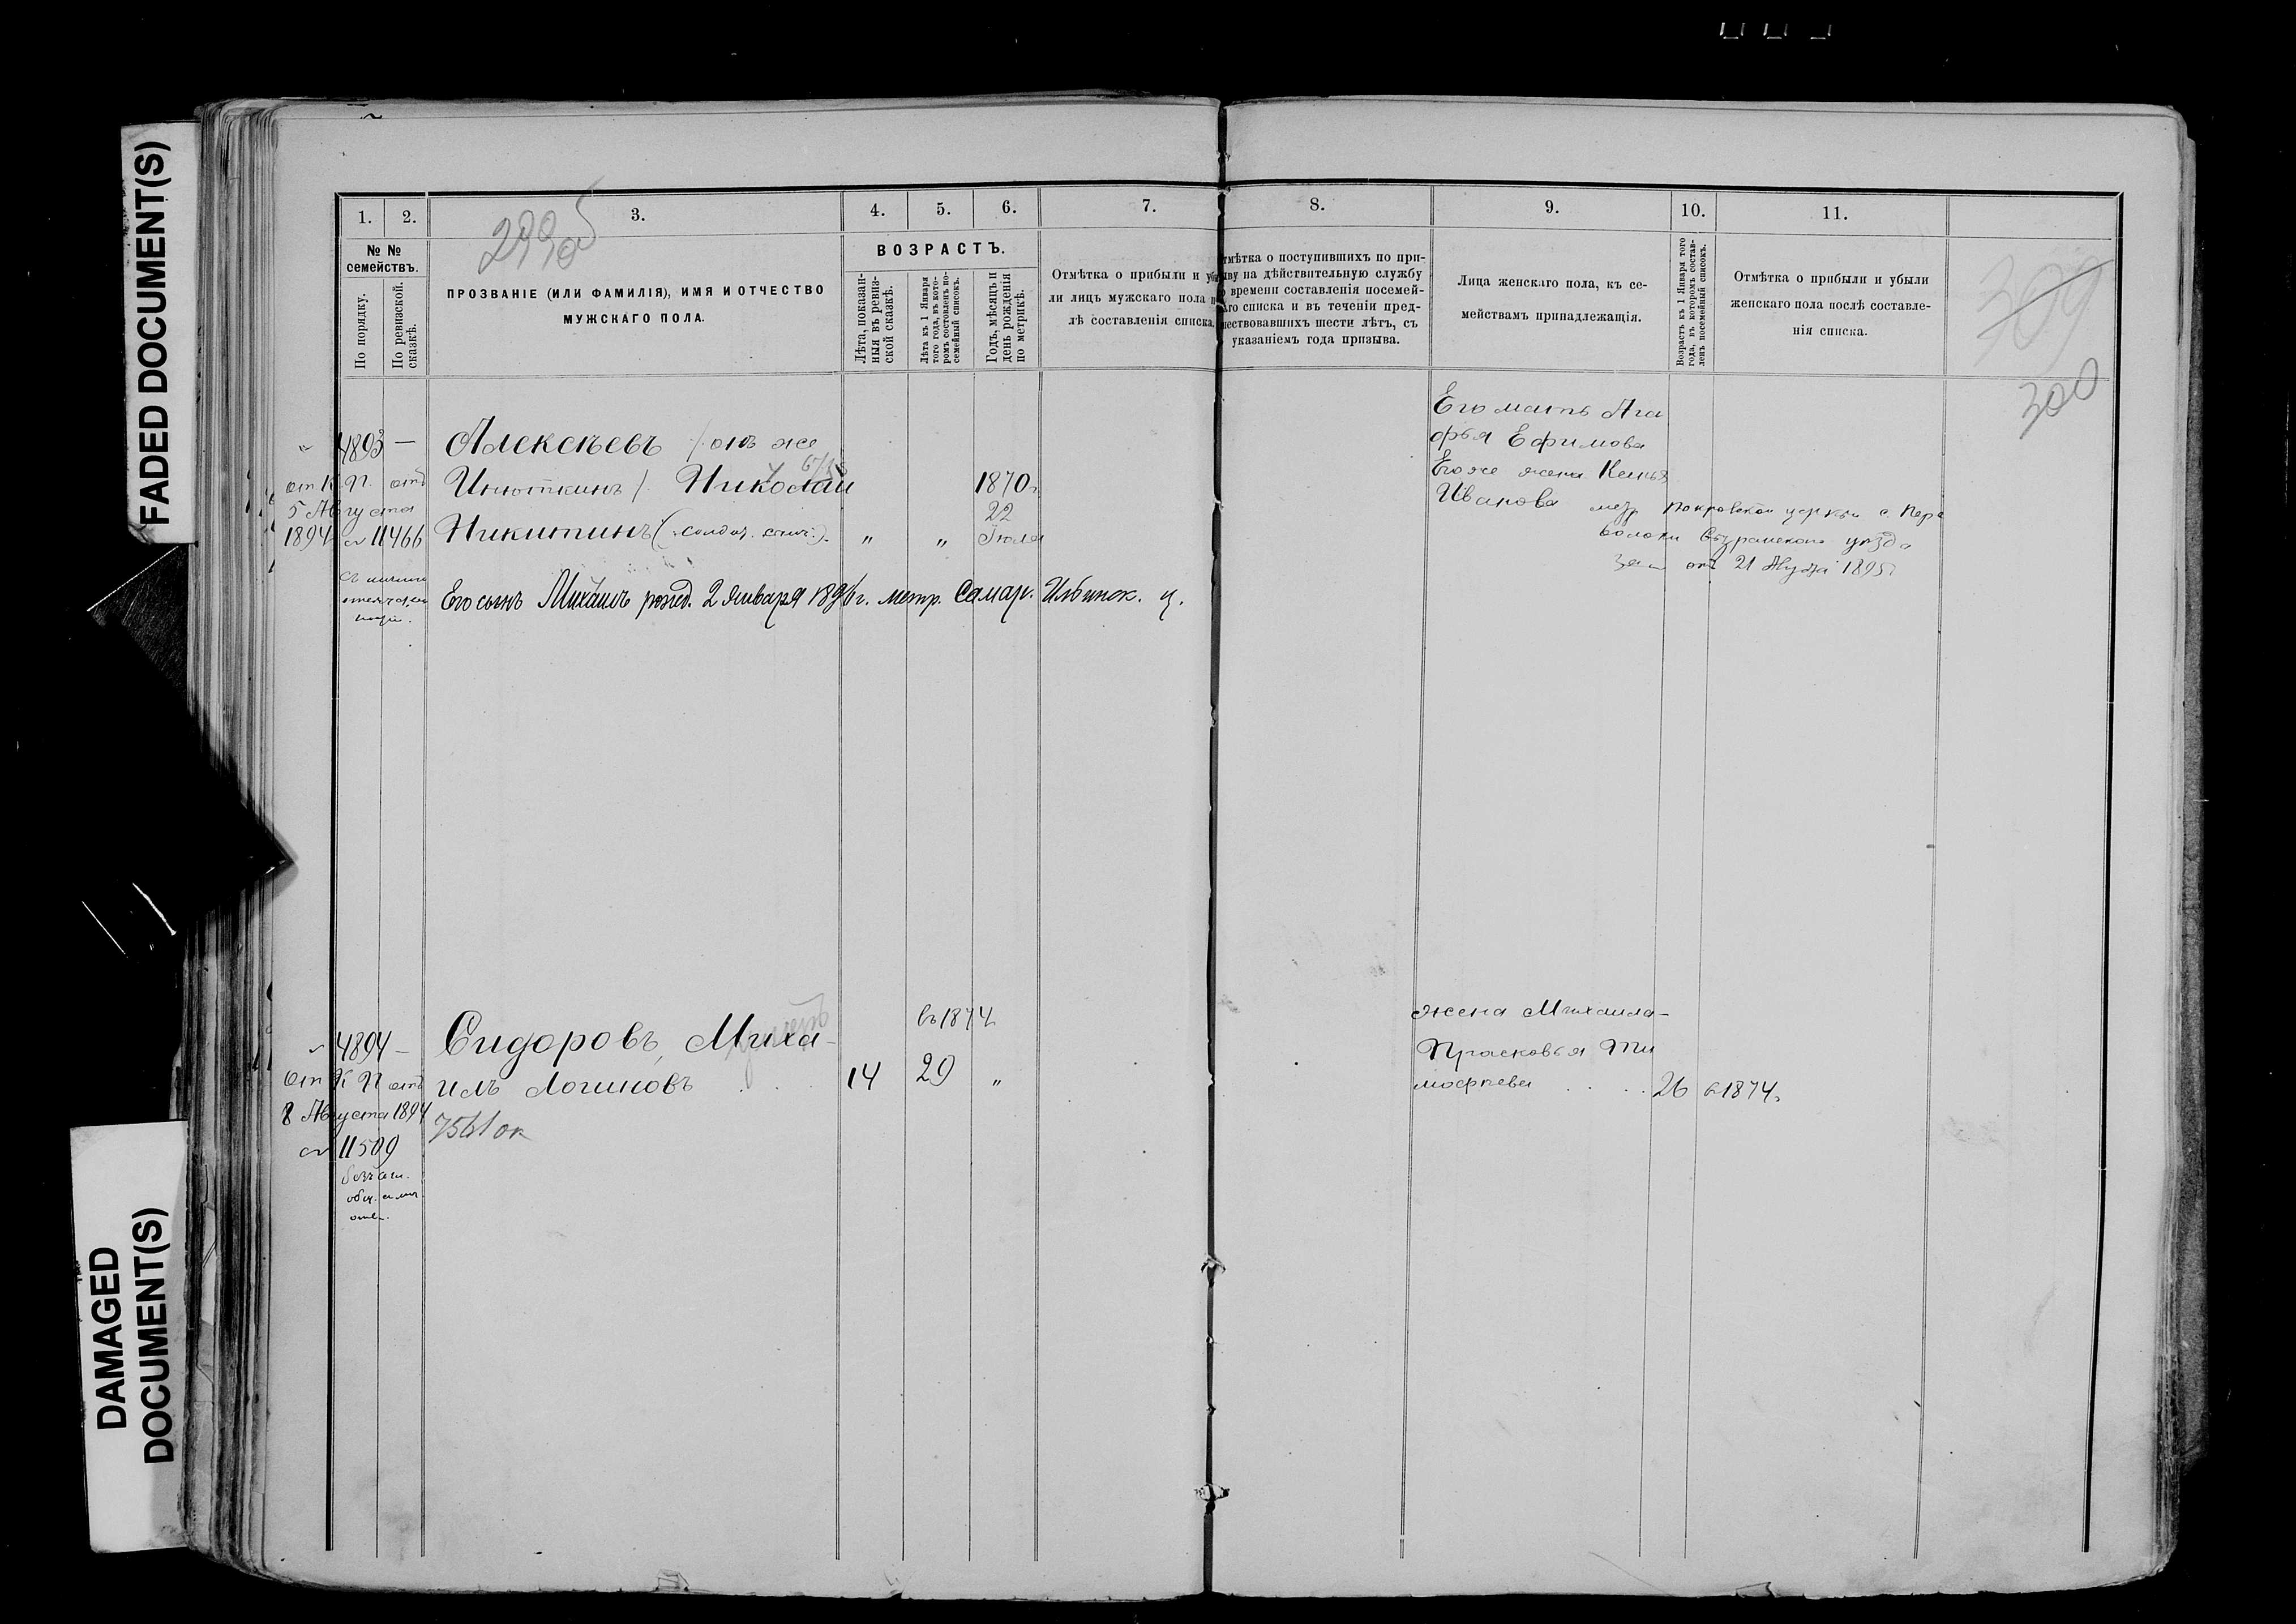 FADED DOCUMENT(S)
DAMAGED
DOCUMENT(S)
299об
309
300
1. 2. 3. 4. 5. 6. 7. 8. 9. 10. 11.
№ №
семействъ.
По порядку.
По ревизской сказкѣ.
ПРОЗВАНІЕ (ИЛИ ФАМИЛІЯ), ИМЯ И ОТЧЕСТВО
МУЖСКАГО ПОЛА.
ВОЗРАСТЪ.
Лѣта, показан-
ныя въ ревиз-
ской сказкѣ.
Лѣта къ 1 Января
того года, въ кото-
ромъ составленъ по-
семейный списокъ.
Годъ, мѣсяцъ и
день рожденія
по метрикѣ.
Отмѣтка о прибыли и убы
ли лицъ мужскаго пола п
лѣ составленія списка.
тмѣтка о поступившихъ по при-
ву на дѣйствительную службу
о времени составленія посемей-
аго списка и въ теченіи пред-
шествовавшихъ шести лѣтъ, съ
указаніемъ года призыва.
Лица женскаго пола, къ се-
мействамъ принадлежащія.
Возрастъ къ 1 Января того
года, въ которомъ состав-
ленъ посемейный списокъ.
Отмѣтка о прибыли и убыли
женскаго пола послѣ составле-
нія списка.
4893 —
от К. П. отъ
5 Августа
1894 11466
Алексѣевъ / онъ же
Инюткинъ /. Николай
Никитинъ (солдат. сынъ). " "
1870 г.
22
Іюля
Его сынъ Михаилъ рожд. 2 Января 1896 г. метр. Самар. Ильинск. ц.
Его мать Ага
фья Ефимова
Его же жена Ксенья
Иванова метр Покровской церкви с. Пере
волоки Сызранского уезда
за от 21 Августа 1895 г
4894 —
От К П отъ
8 Августа 1894
11509
Сидоровъ, Миха-
илъ Логиновъ
7561 ок
14
въ 1874
29 "
жена Михаила-
Прасковья Ти
мофѣева . . . . 26 в 1874 г.